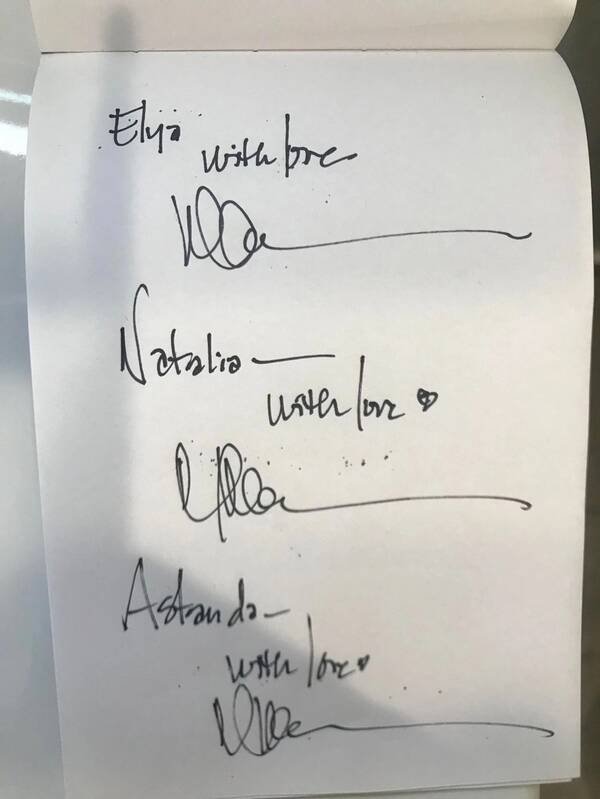 Elya
with love
Natalia —
with love ♥
Astanda —
with love ♥